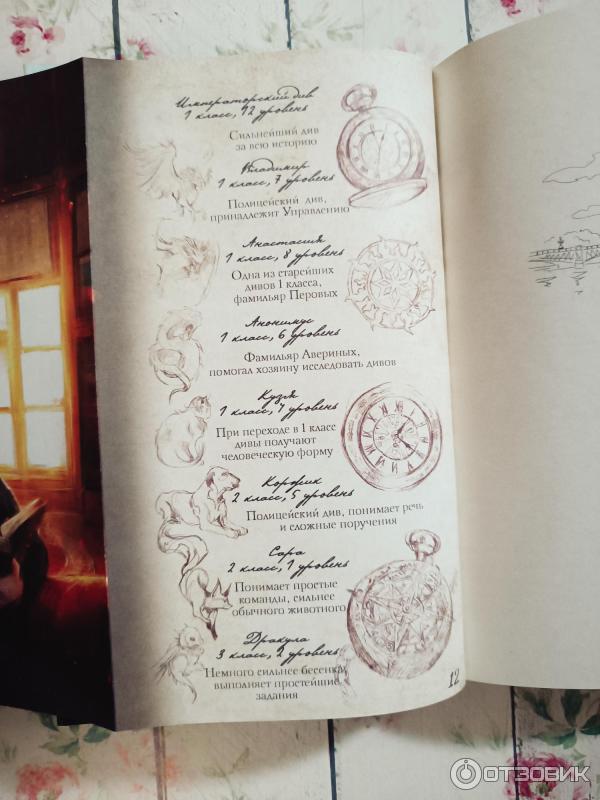 Императорский див
1 класс, 12 уровень
Сильнейший див
за всю историю
Владимир
1 класс, 7 уровень
Полицейский див,
принадлежит Управлению
Анастасия
1 класс, 8 уровень
Одна из старейших
дивов 1 класса,
фамильяр Перовых
Анонимус
1 класс, 6 уровень
Фамильяр Авериных,
помогал хозяину исследовать дивов
Кузя
1 класс, 1 уровень
При переходе в 1 класс
дивы получают
человеческую форму
Корфик
2 класс, 5 уровень
Полицейский див, понимает речь
и сложные поручения
Сара
2 класс, 1 уровень
Понимает простые
команды, сильнее
обычного животного
Дракула
3 класс, 2 уровень
Немного сильнее бесенка,
выполняет простейшие
задания
12
ОТЗОВИК